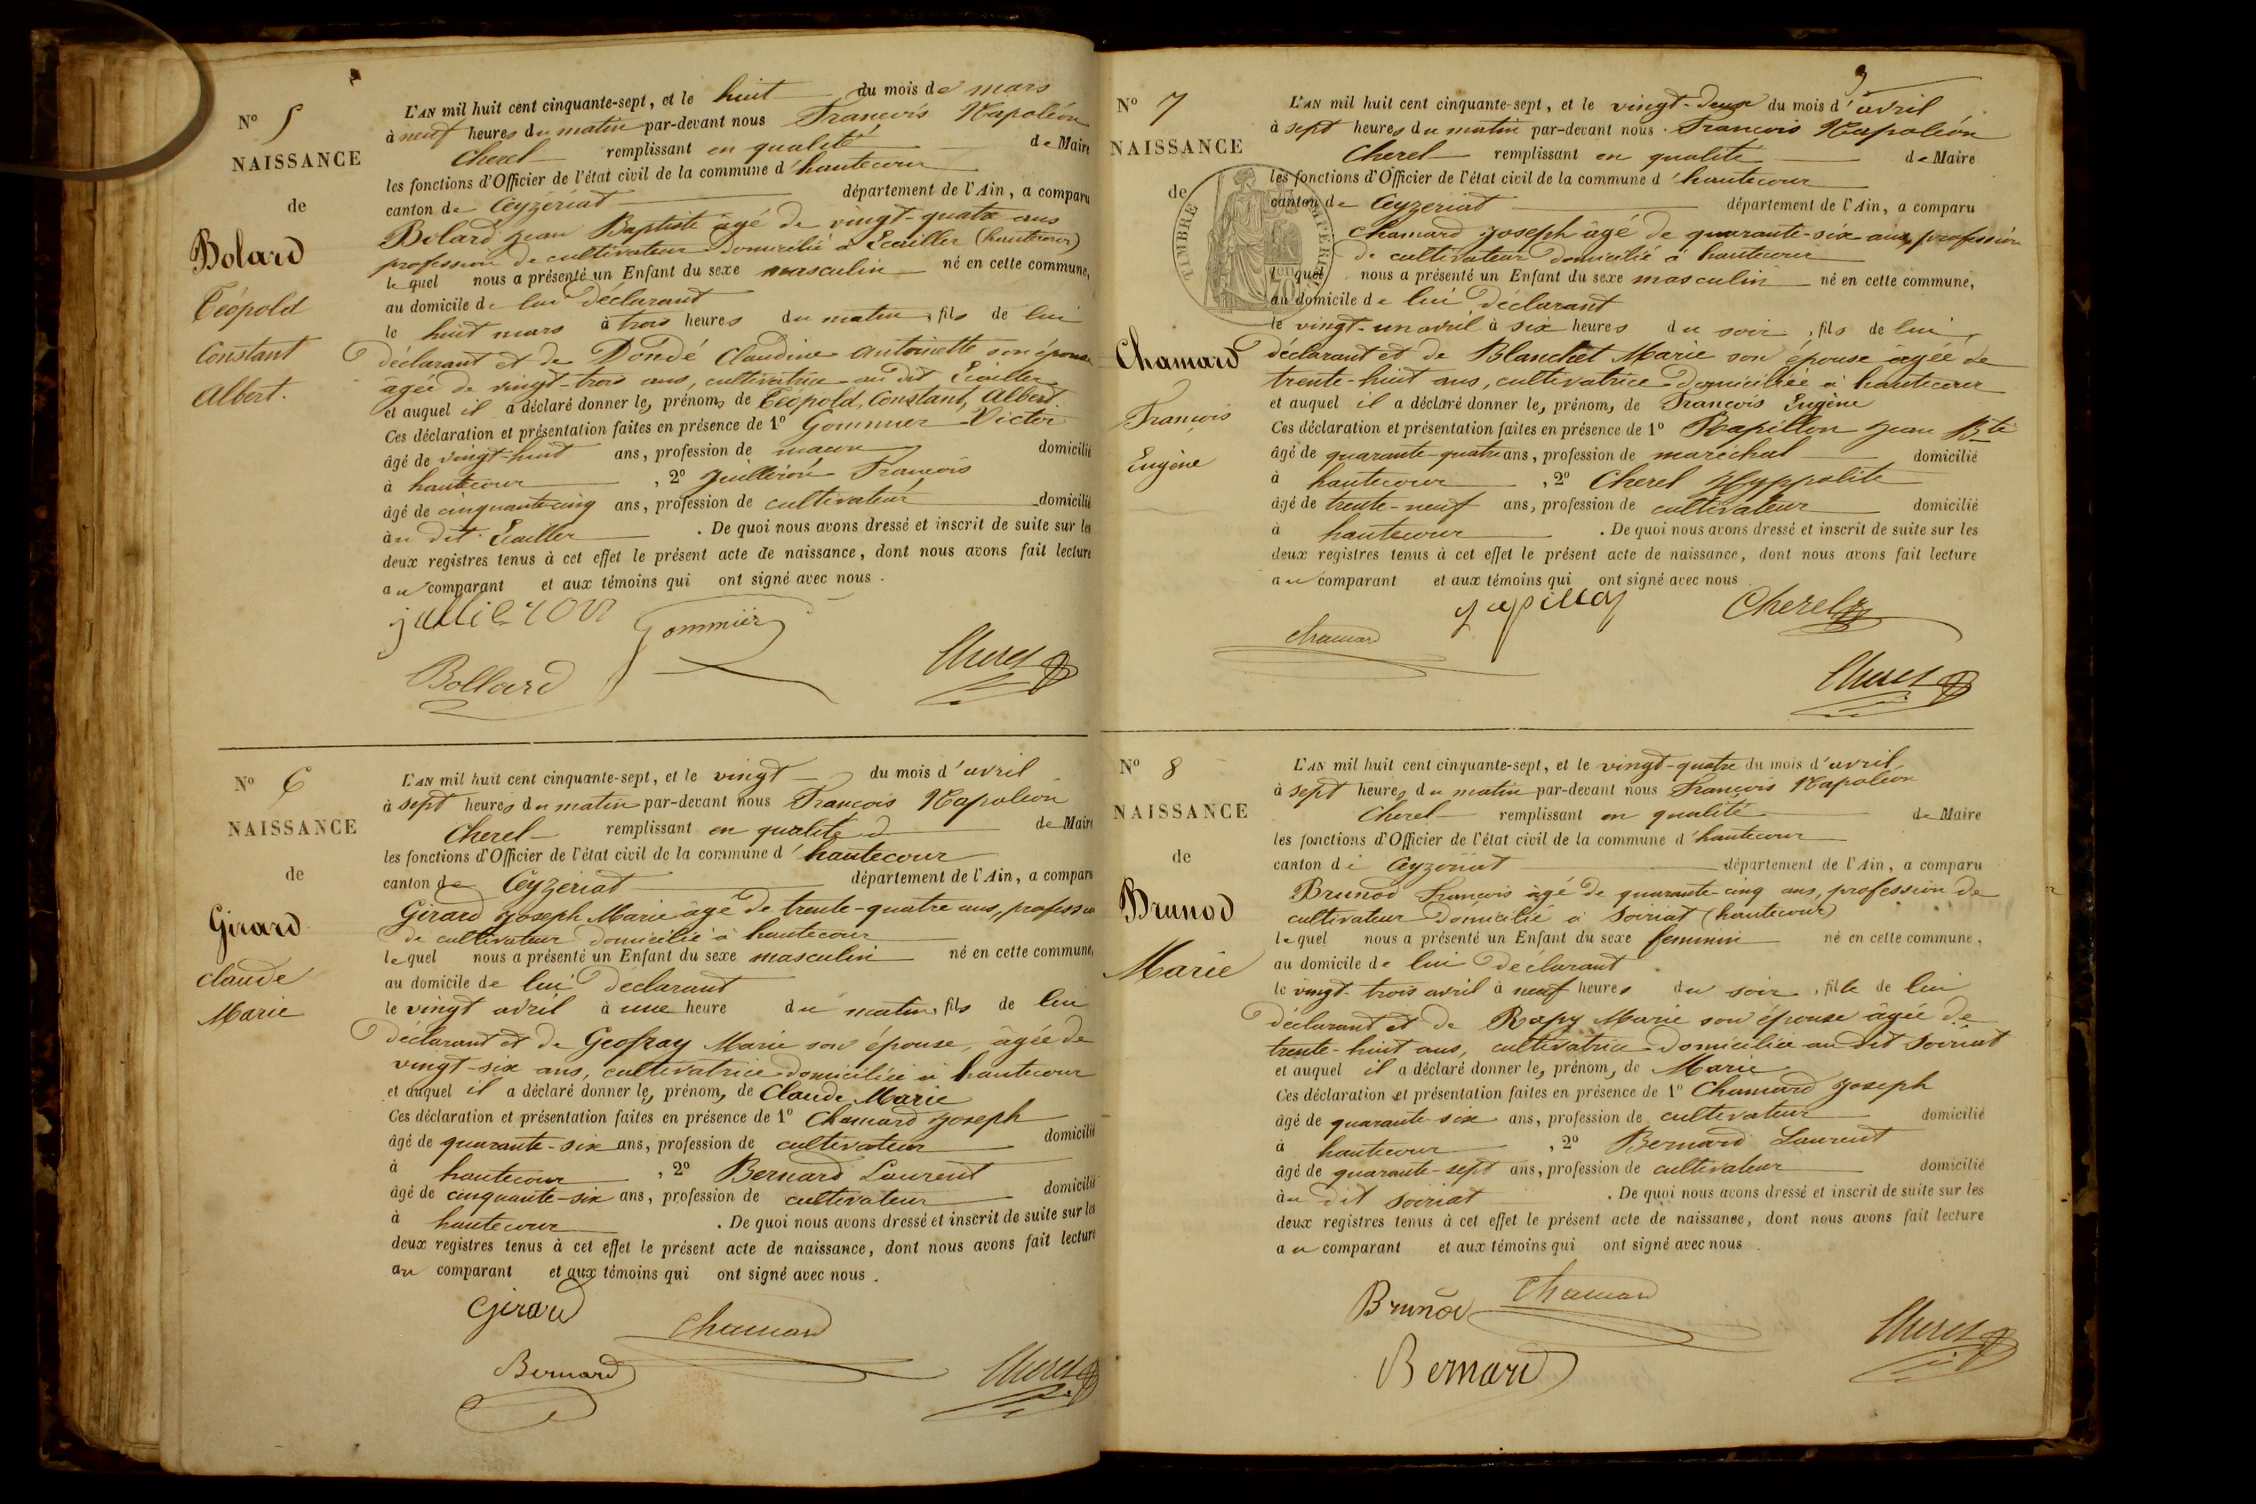 N° 5
NAISSANCE
de
Bolard
Léopold
Constant
Albert.
L'AN mil huit cent cinquante-sept, et le huit du mois de mars
à neuf heures du matin par-devant nous François Napoléon
Cherel remplissant en qualité de Maire
les fonctions d'Officier de l'état civil de la commune d'hautecour
canton de Ceyzériat département de l'Ain, a comparu
Bolard Jean Baptiste âgé de vingt-quatre ans
profession de cultivateur domicilié à (hautecour)
lequel nous a présenté un Enfant du sexe masculin né en cette commune,
au domicile de lui déclarant
le huit mars à trois heures du matin, fils de lui
déclarant et de Dondé Claudine antoinette son épouse
âgée de vingt-trois ans, cultivatrice au dit
et auquel il a déclaré donner les prénoms de Léopold, Constant, Albert.
Ces déclaration et présentation faites en présence de 1° Gommier Victor
âgé de vingt-huit ans, profession de maçon domicilié
à hautecour, 2° Juilleron François
âgé de cinquante-cinq ans, profession de cultivateur domicilié
au dit . De quoi nous avons dressé et inscrit de suite sur les
deux registres tenus à cet effet le présent acte de naissance, dont nous avons fait lecture
au comparant et aux témoins qui ont signé avec nous.
juillieron Gommier
Bollard Cherel
N° 6
NAISSANCE
de
Girard
Claude
Marie
L'AN mil huit cent cinquante-sept, et le vingt du mois d'avril
à sept heures du matin par-devant nous François Napoléon
Cherel remplissant en qualité de Maire
les fonctions d'Officier de l'état civil de la commune d'hautecour
canton de Ceyzériat département de l'Ain, a comparu
Girard Joseph Marie âgé de trente-quatre ans, profession
de cultivateur domicilié à hautecour
lequel nous a présenté un Enfant du sexe masculin né en cette commune,
au domicile de lui déclarant
le vingt avril à une heure du matin, fils de lui
déclarant et de Geofray Marie son épouse, âgée de
vingt-six ans, cultivatrice domiciliée à hautecour
et auquel il a déclaré donner les prénoms de Claude Marie
Ces déclaration et présentation faites en présence de 1° Chamard Joseph
âgé de quarante-six ans, profession de cultivateur domicilié
à hautecour, 2° Bernard Laurent
âgé de cinquante-six ans, profession de cultivateur domicilié
à hautecour . De quoi nous avons dressé et inscrit de suite sur les
deux registres tenus à cet effet le présent acte de naissance, dont nous avons fait lecture
au comparant et aux témoins qui ont signé avec nous.
Girard Chamard
Bernard Cherel
3
N° 7
NAISSANCE
de
TIMBRE IMPÉRIAL
Chamard
François
Eugène
L'AN mil huit cent cinquante-sept, et le vingt-deux du mois d'avril
à sept heures du matin par-devant nous François Napoléon
Cherel remplissant en qualité de Maire
les fonctions d'Officier de l'état civil de la commune d'hautecour
canton de Ceyzeriat département de l'Ain, a comparu
Chamard Joseph âgé de quarante-six ans, profession
de cultivateur domicilié à hautecour
lequel nous a présenté un Enfant du sexe masculin né en cette commune,
au domicile de lui déclarant
le vingt-un avril à six heures du soir, fils de lui
déclarant et de Blanchet Marie son épouse âgée de
trente-huit ans, cultivatrice domiciliée à hautecour
et auquel il a déclaré donner les prénoms de François Eugène
Ces déclaration et présentation faites en présence de 1° Papillon Jean Bte
âgé de quarante-quatre ans, profession de maréchal domicilié
à hautecour, 2° Cherel Hyppolite
âgé de trente-neuf ans, profession de cultivateur domicilié
à hautecour . De quoi nous avons dressé et inscrit de suite sur les
deux registres tenus à cet effet le présent acte de naissance, dont nous avons fait lecture
au comparant et aux témoins qui ont signé avec nous
Chamard Cherel
Cherel
N° 8
NAISSANCE
de
Brunod
Marie
L'AN mil huit cent cinquante-sept, et le vingt-quatre du mois d'avril
à sept heures du matin par-devant nous François Napoléon
Cherel remplissant en qualité de Maire
les fonctions d'Officier de l'état civil de la commune d'hautecour
canton de Ceyzériat département de l'Ain, a comparu
Brunod François âgé de quarante-cinq ans, profession de
cultivateur domicilié à Soiriat (hautecour)
lequel nous a présenté un Enfant du sexe feminin né en cette commune,
au domicile de lui déclarant
le vingt-trois avril à neuf heures du soir, fille de lui
déclarant et de Rapy Marie son épouse âgée de
trente-huit ans, cultivatrice domiciliée au dit Soiriat
et auquel il a déclaré donner les prénoms de Marie
Ces déclaration et présentation faites en présence de 1° Chamard Joseph
âgé de quarante-six ans, profession de cultivateur domicilié
à hautecour, 2° Bernard Laurent
âgé de quarante-sept ans, profession de cultivateur domicilié
au dit Soiriat . De quoi nous avons dressé et inscrit de suite sur les
deux registres tenus à cet effet le présent acte de naissance, dont nous avons fait lecture
au comparant et aux témoins qui ont signé avec nous.
Brunod Chamard
Bernard Cherel